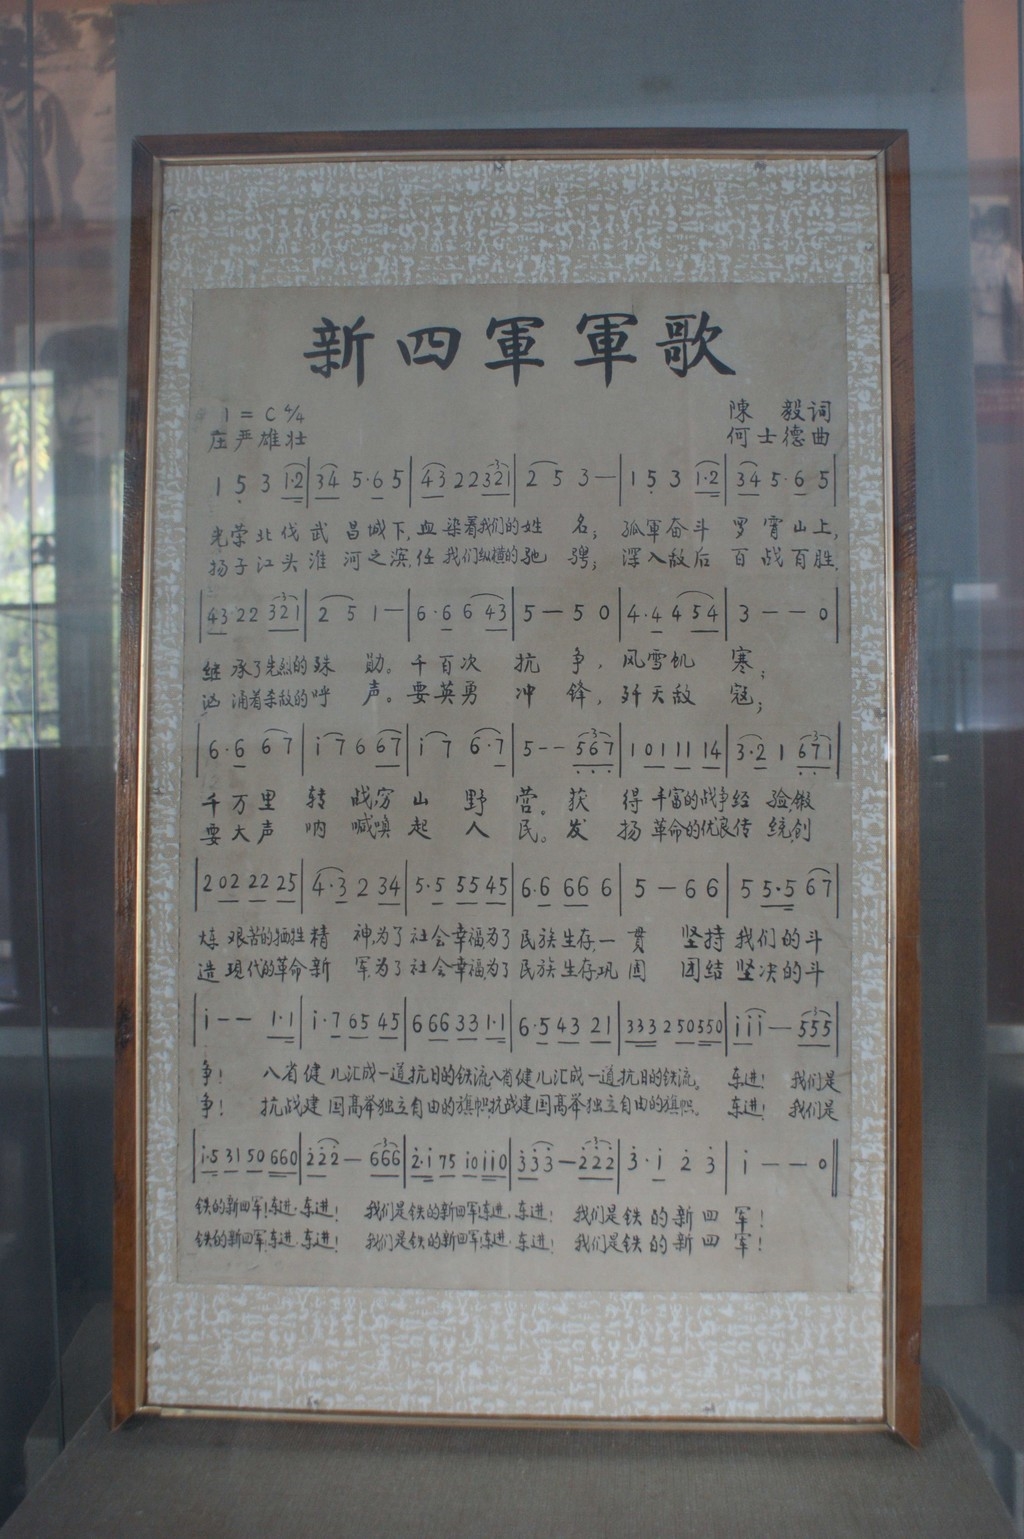 新四軍軍歌
1 = C 4/4
陳 毅词
庄严雄壮
何士德曲
1 5 3 1·2 | 3 4 5·6 5 | 4 3 2 2 3 2 1 | 2 5 3 — | 1 5 3 1·2 | 3 4 5·6 5 |
光荣北伐武 昌城下,血 染着我们的姓 名; 孤軍奋斗 罗霄山上,
扬子江头淮 河之滨,任 我们纵横的驰 骋; 深入敌后 百战百胜,
4 3 2 2 3 2 1 | 2 5 1 — | 6·6 6 4 3 | 5 — 5 0 | 4·4 4 5 4 | 3 — — 0 |
继 承了先烈的殊 勋。千百次 抗 争, 风雪饥 寒;
汹 涌着杀敌的呼 声。要英勇 冲 锋, 歼灭敌 寇;
6·6 6 7 | i 7 6 6 7 | i 7 6·7 | 5 - - 5 6 7 | 1 0 1 1 1 1 4 | 3·2 1 6 7 1 |
千万里 转 战穷 山 野 营。获 得 丰富的战争经 验,锻
要大声 呐 喊唤 起 人 民。发 扬 革命的优良传 统,创
2 0 2 2 2 2 5 | 4·3 2 3 4 | 5·5 5 5 4 5 | 6·6 6 6 6 | 5 — 6 6 | 5 5·5 6 7 |
炼 艰苦的牺牲精 神,为了 社会幸福,为了 民族生存,一 贯 坚持 我们的斗
造 现代的革命新 军,为了 社会幸福,为了 民族生存,巩 固 团结 坚决的斗
i — — i·i | i·7 6 5 4 5 | 6 6 6 3 3 1·1 | 6·5 4 3 2 1 | 3 3 3 2 5 0 5 5 0 | i i i — 5 5 5 |
争! 八省健 儿汇成一道抗日的铁流,八省健儿汇成一道抗日的铁流。 东进! 我们是
争! 抗战建 国高举独立自由的旗帜,抗战建国高举独立自由的旗帜。 东进! 我们是
i·5 3 1 5 0 6 6 0 | 2 2 2 — 6 6 6 | 2·i 7 5 i 0 i i 0 | 3 3 3 — 2 2 2 | 3·i 2 3 | i — — 0 ‖
铁的新四军!东进,东进! 我们是铁的新四军!东进,东进! 我们是铁的新四 军!
铁的新四军!东进,东进! 我们是铁的新四军!东进,东进! 我们是铁的新四 军!